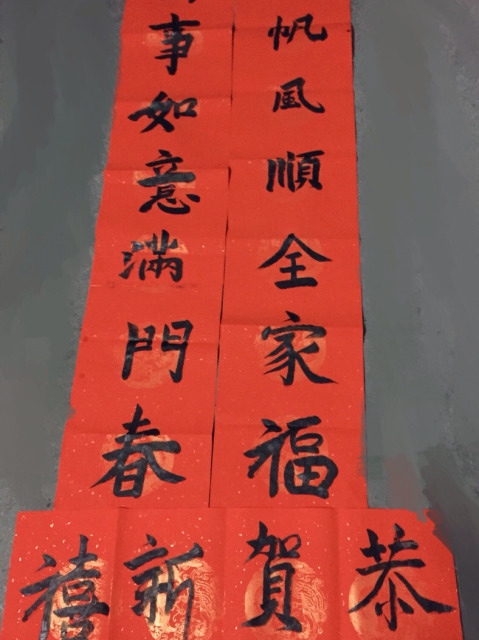 帆風順全家福
事如意滿門春
恭賀新禧